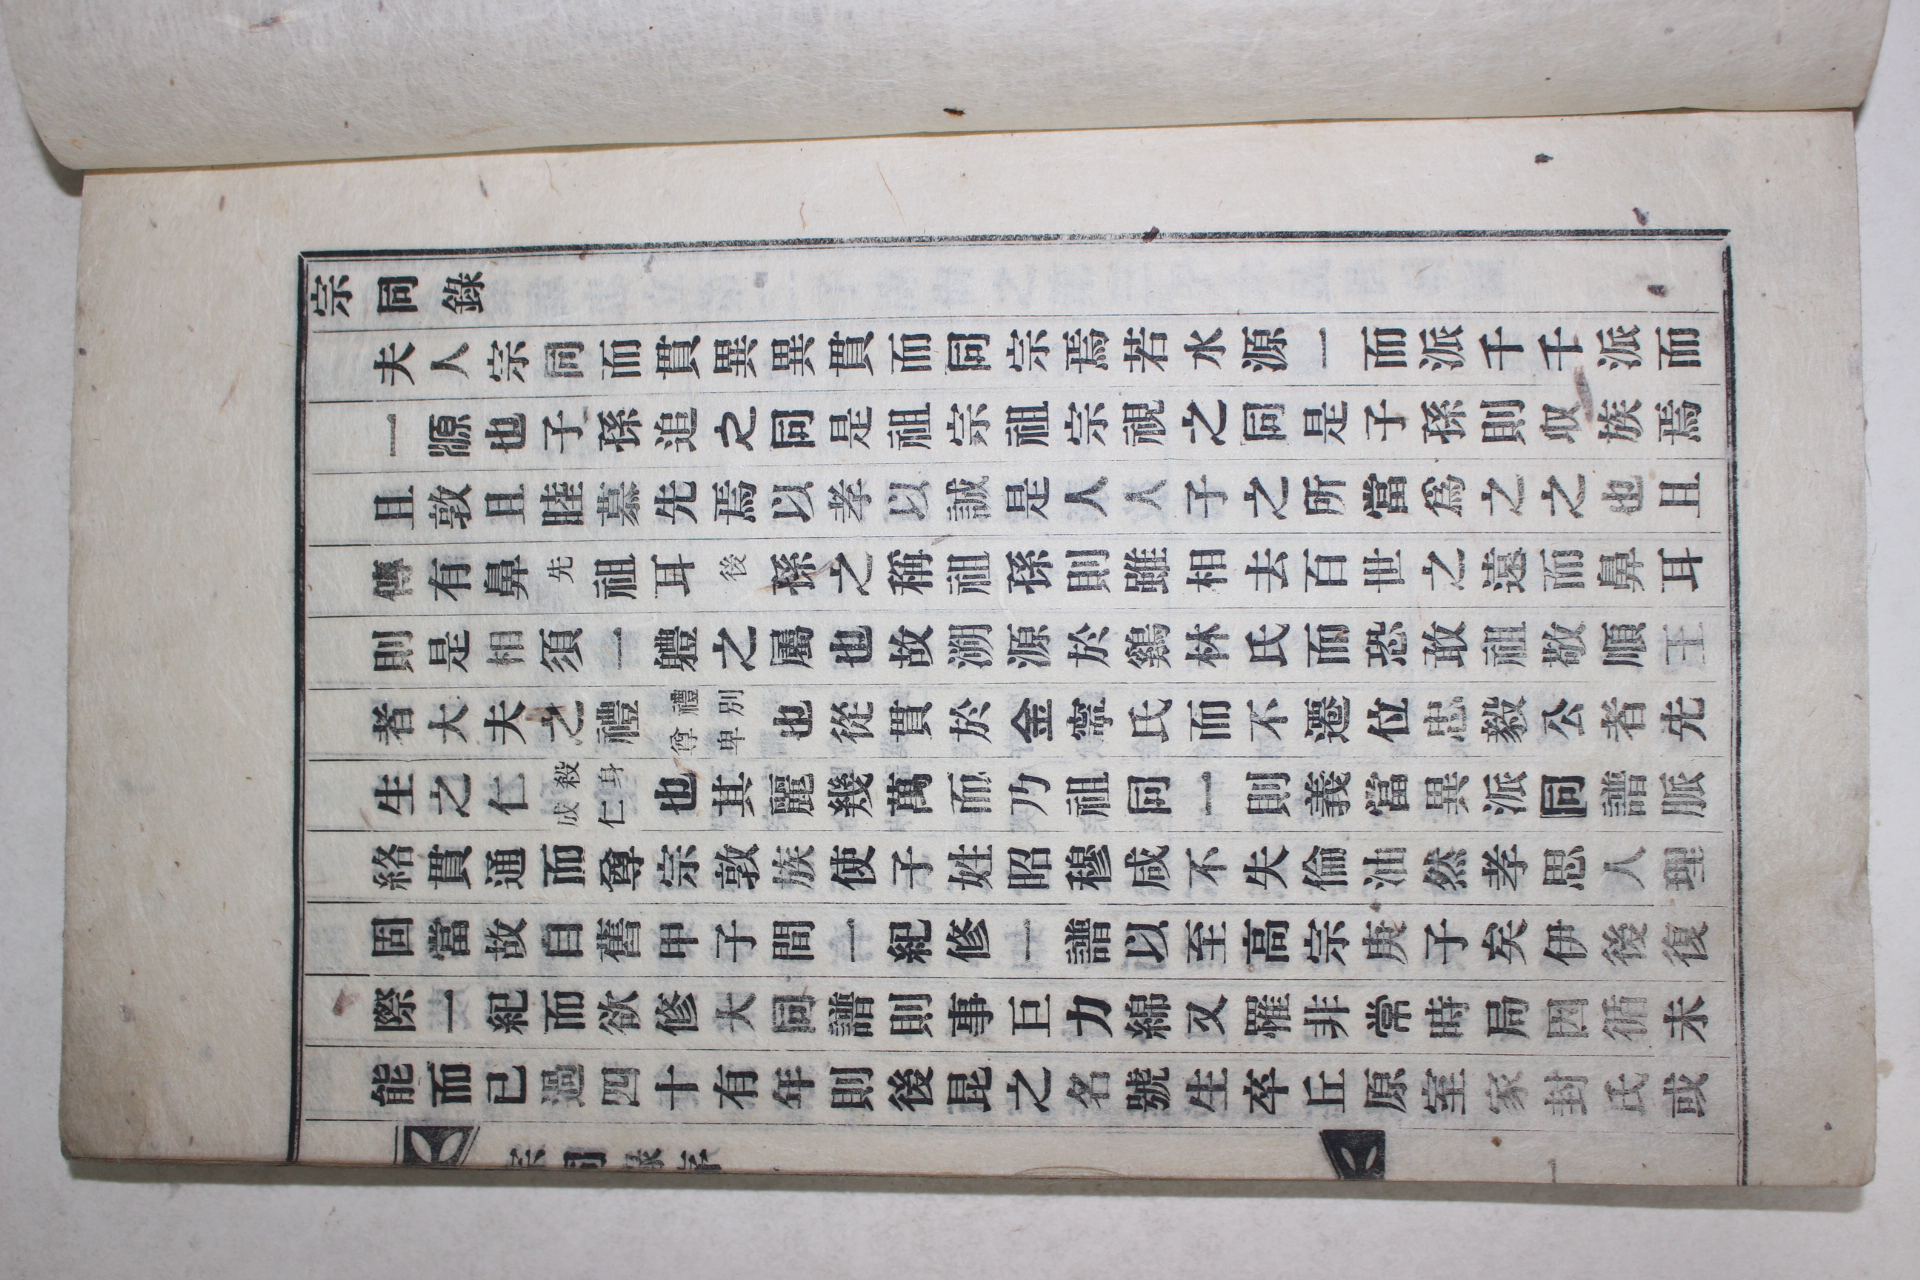 宗同錄
夫人宗同而貫異異貫而同宗焉若水源一而派千千派而
一源也子孫追之同是祖宗祖宗視之同是子孫則収族焉
且敦且睦慕先焉以孝以誠是人人子之所當爲之之也且
傳有鼻先祖耳後孫之稱祖孫則雖相去百世之遠而鼻耳
則是相須一軆之屬也故溯源於鷄林氏而恐敢祖敬順王
者大夫之禮禮別尊卑也從貫於金寧氏而不遷位忠毅公者先
生之仁殺身成仁也其麗幾萬而乃祖同一則義當異派同譜脈
絡貫通而尊宗敦族使子姓昭穆咸不失倫油然孝思人理
固當故自舊甲子間一紀修一譜以至高宗庚子矣伊後復
際一紀而欲修大同譜則事巨力綿又罹非常時局因循未
能而已過四十有年則後昆之名號生卒丘原室家封氏或
宗同錄序